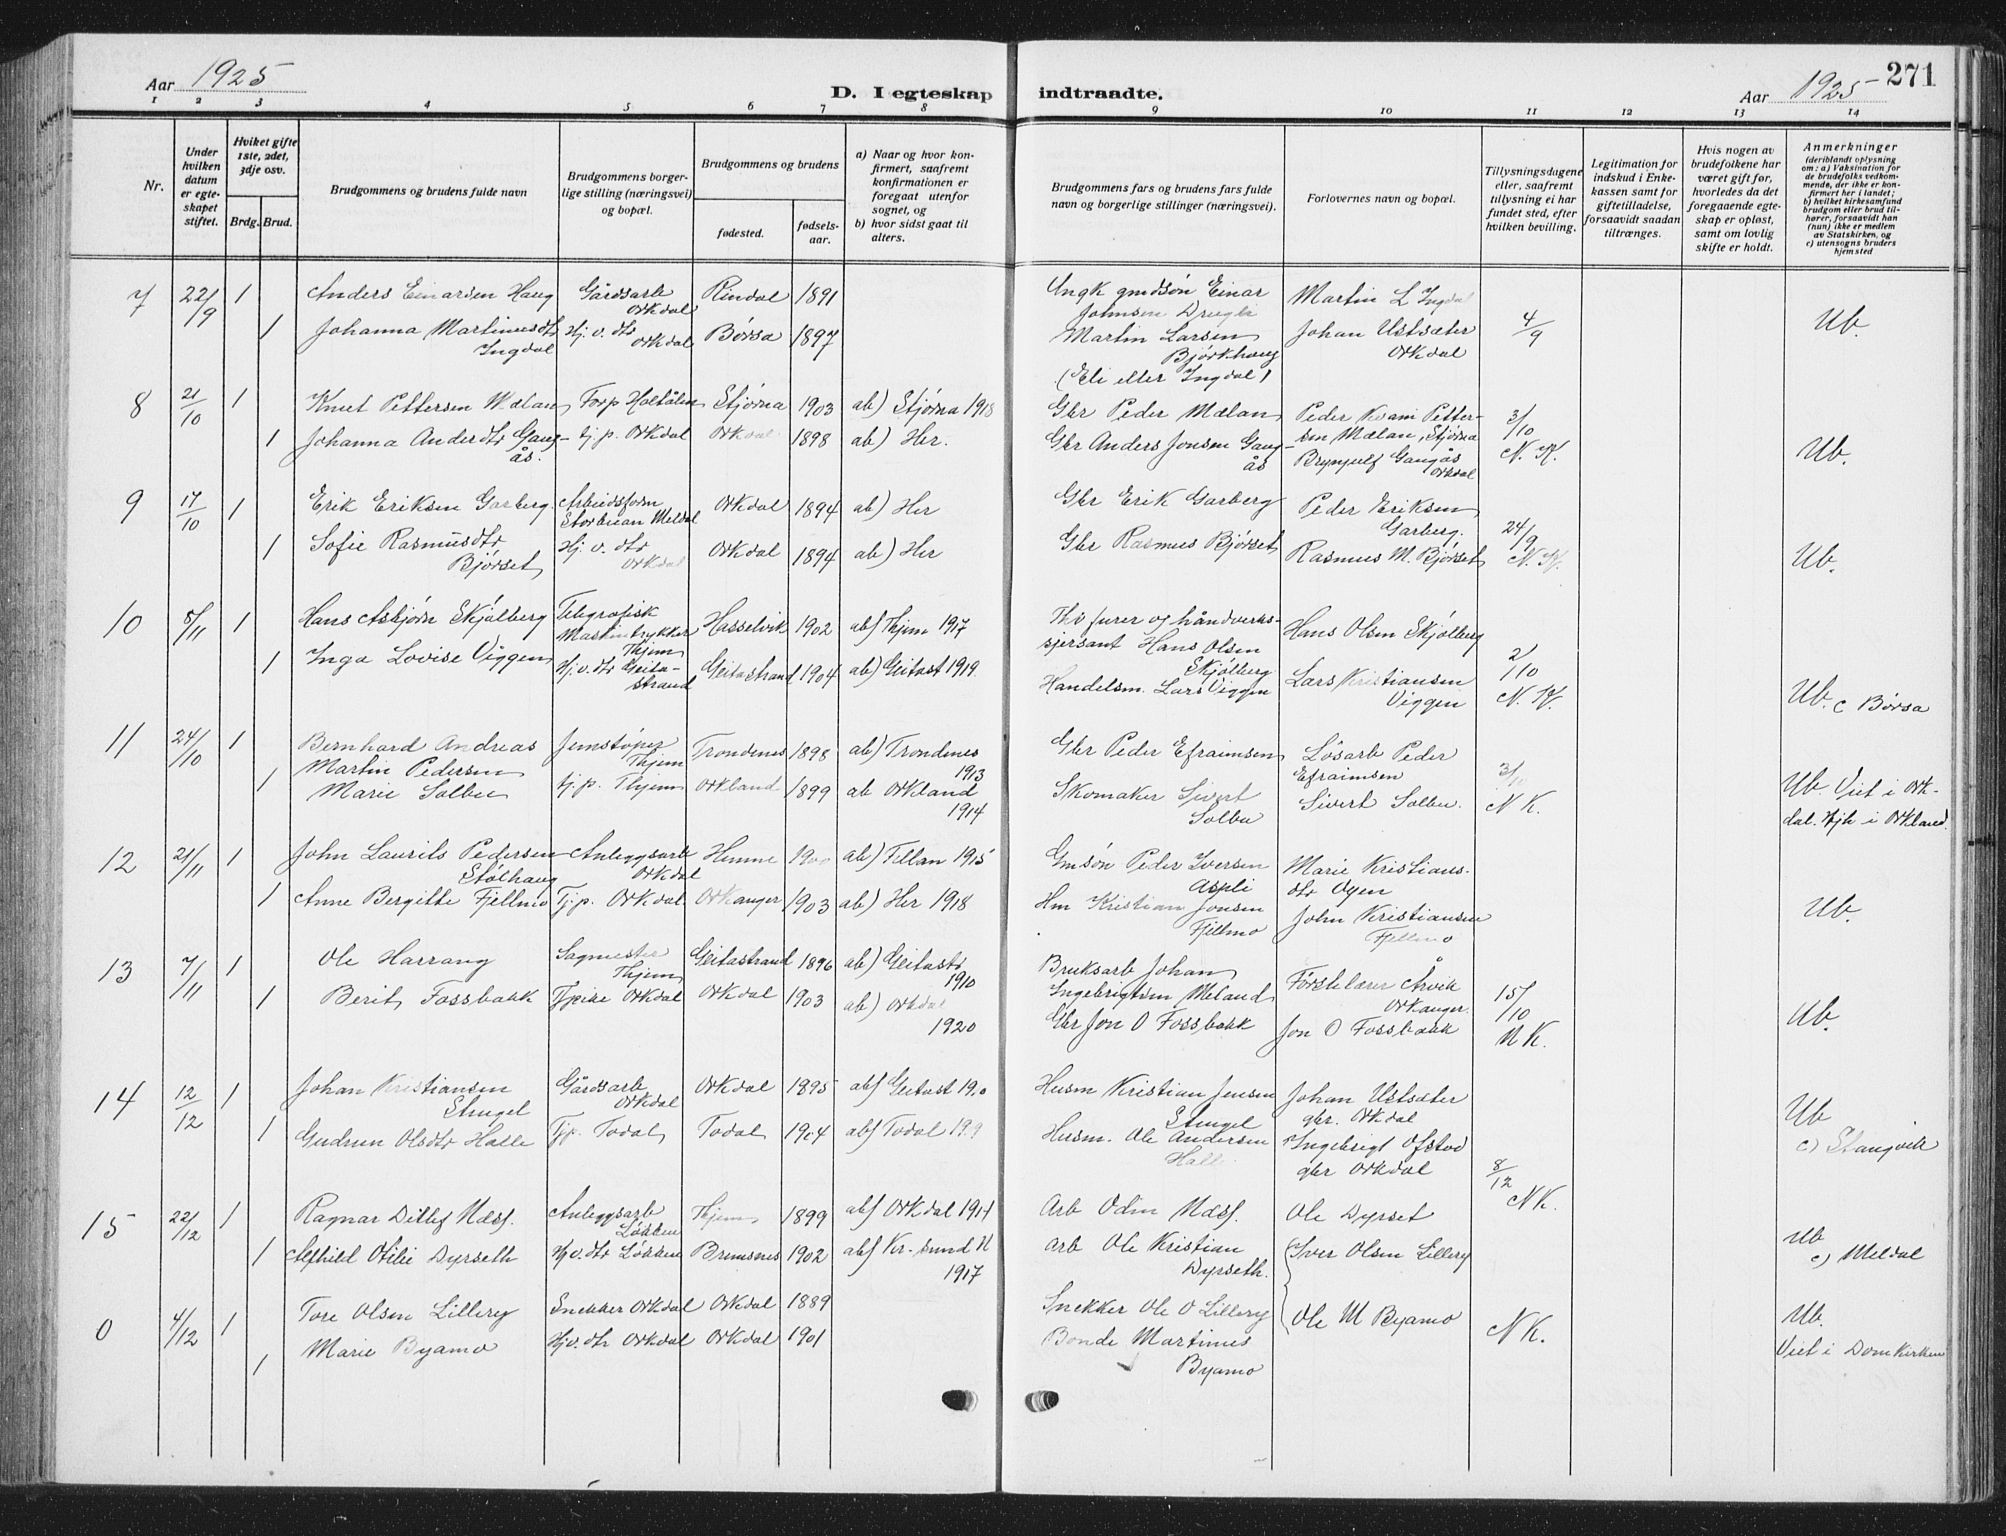 Aar 1925
D. I egteskap indtraadte.
Aar 1925
271
1 2 3 4 5 6 7 8 9 10 11 12 13 14
Nr.
Under hvilken datum er egteskapet stiftet.
Hviket gifte 1ste, 2det, 3dje osv.
Brdg. Brud.
Brudgommens og brudens fulde navn
Brudgommens borgerlige stilling (næringsvei) og bopæl.
Brudgommens og brudens
fødested.
fødselsaar.
a) Naar og hvor konfirmert, saafremt konfirmationen er foregaat utenfor sognet, og
b) hvor sidst gaat til alters.
Brudgommens fars og brudens fars fulde navn og borgerlige stillinger (næringsvei).
Forlovernes navn og bopæl.
Tillysningsdagene eller, saafremt tillysning ei har fundet sted, efter hvilken bevilling.
Legitimation for indskud i Enkekassen samt for giftetilladelse, forsaavidt saadan tiltrænges.
Hvis nogen av brudefolkene har været gift før, hvorledes da det foregaaende egteskap er opløst, samt om lovlig skifte er holdt.
Anmerkninger
(deriblandt oplysning om: a) Vaksination for de brudefolks vedkommende, der ikke er konfirmert her i landet; b) hvilket kirkesamfund brudgom eller brud tilhører, forsaavidt han (hun) ikke er medlem av Statskirken, og c) utensogns bruders hjemsted
7 22/9 1 Anders Einarsen Haug Gårdsarb Orkdal Rindal 1891 Einar Johnsen Martin L Ingdal
1 Johanna Martinusdtr Ingdal Hj.v.dtr Orkdal Børsa 1897 Martin Larsen Bjørkhaug (Eli eller Ingdal) Johan Ustsæter Orkdal 4/9 Ub.
8 21/10 1 Knut Pettersen Mælan Forp Haltålen Stjørna 1903 ab) Stjørna 1918 Gbr Peder Mælan Peder Kvam Pettersen Mælan, Stjørna 3/10
1 Johanna Andersdtr Gangås. tj.p. Orkdal Orkdal 1898 ab) Her. Gbr Anders Jonsen Gangås Brynjulf Gangås Orkdal N.K. Ub.
9 17/10 1 Erik Eriksen Garberg Arbeidsform Storbrean Meldal Orkdal 1894 ab) Her Gbr Erik Garberg Peder Eriksen Garberg. 24/9
1 Sofie Rasmusdtr Bjørset Hj.v.dtr Orkdal Orkdal 1894 ab) Her Gbr Rasmus Bjørset Rasmus M. Bjørset N.K. Ub.
10 5/11 1 Hans Asbjørn Skjølberg Telegrafisk Maskintrykker Thjem Hasselvik 1902 ab) Thjem 1917 furer og håndverks-sjersant Hans Olsen Skjølberg Hans Olsen Skjølberg
1 Inga Lovise Viggen Hj.v.dtr Geitastrand Geitastrand 1904 ab) Geitast 1919. Handelsm. Lars Viggen Lars Kristiansen Viggen 2/10 N.K. Ub. c Børsa
11 24/10 1 Bernhard Andreas Martin Pedersen Jernstøper Thjem Trondenes 1898 ab) Trondenes 1913 Gbr Peder Efraimsen Løsarb Peder Efraimsen
1 Marie Solbu tj.p. Thjem Orkland 1899 ab Orkland 1914 Skomaker Sivert Solbu Sivert Solbu. N K. Ub. Viet i Orkdal. Hjh i Orkland.
12 21/11 1 John Laurits Pedersen Stølhaug Anleggsarb Orkdal Hemne ab) Fillan 1915 Gmsøn Peder Iversen Aspli Marie Kristiansdtr Oyen
1 Anne Bergitte Fjellmo Tj.p. Orkdal Orkanger 1903 ab) Her 1918 Hm Kristian Jonsen Fjellmo John Kristiansen Fjellmo Ub.
13 7/11 1 Ole Harrang Sagmester Thjem Geitastrand 1896 ab) Geitastr 1910 Bruksarb Johan Ingebrigtsen Meland Førstelærer Årvik Orkanger. 15/10
1 Berit Fossbakk Tjeike Orkdal Orkdal 1903 ab) Orkdal 1920 Gbr Jon O Fossbakk Jon O Fossbakk N K. Ub.
14 12/12 1 Johan Kristiansen Stingel Gårdsarb Orkdal Orkdal 1895 ab) Geitast Husm Kristian Jensen Stingel Johan Ustsæter gbr. Orkdal Ub
1 Gudrun Olsdtr Halle Tjp. Todal Todal 1904 ab) Todal Husm. Ole Andersen Halle Ingebrigt Ofstad gbr Orkdal 8/12 N K. c) Stangvik
15 22/12 1 Ragnar Ditlef Næss. Anleggsarb Løkken Thjem 1899 ab) Orkdal 1914 Arb Odin Næss. Ole Dyrset
1 Alfhild Otilie Dyrseth Hj.v.dtr Løkken Bremsnes 1902 ab) Kr.sund N 1917 Arb Ole Kristian Dyrseth. Iver Olsen Lillery Ub c) Meldal
0 4/12 1 Tore Olsen Lillery Snekker Orkdal Orkdal 1889 Snekker Ole O Lillery Ole M Byamo N K. Ub.
1 Marie Byamo Hjv.dtr Orkdal Orkdal 1901 Bonde Martines Byamo Viet i Domkirken